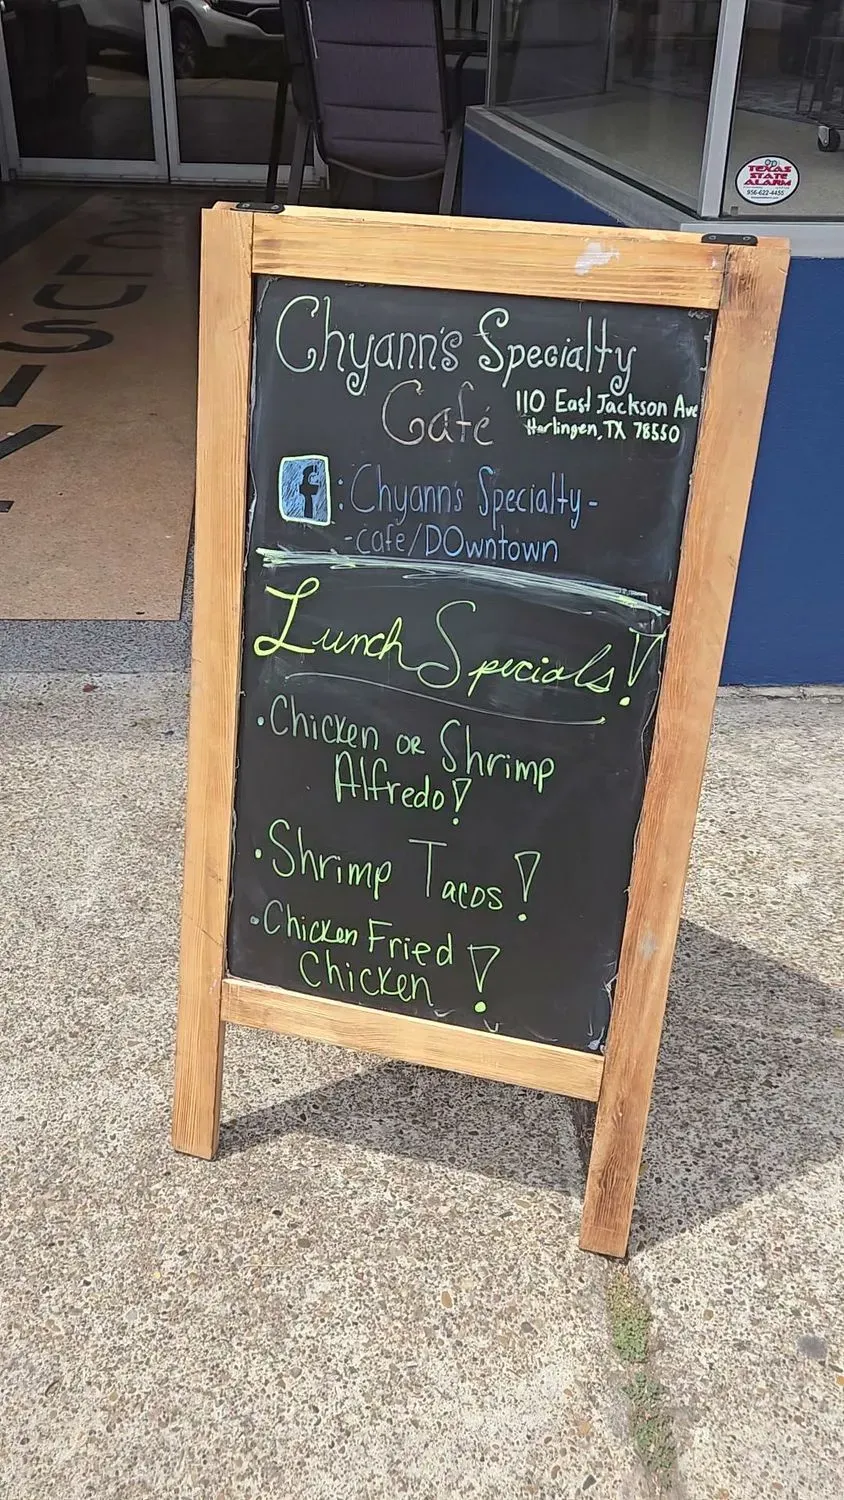 TEXAS
STATE
ALARM
956-622-4455
Chyann's Specialty
Café
110 East Jackson Ave
Harlingen, TX 78550
f : Chyann's Specialty-
-cafe/DOwntown
Lunch Specials!
• Chicken OR Shrimp
Alfredo!
• Shrimp Tacos!
• Chicken Fried
Chicken!